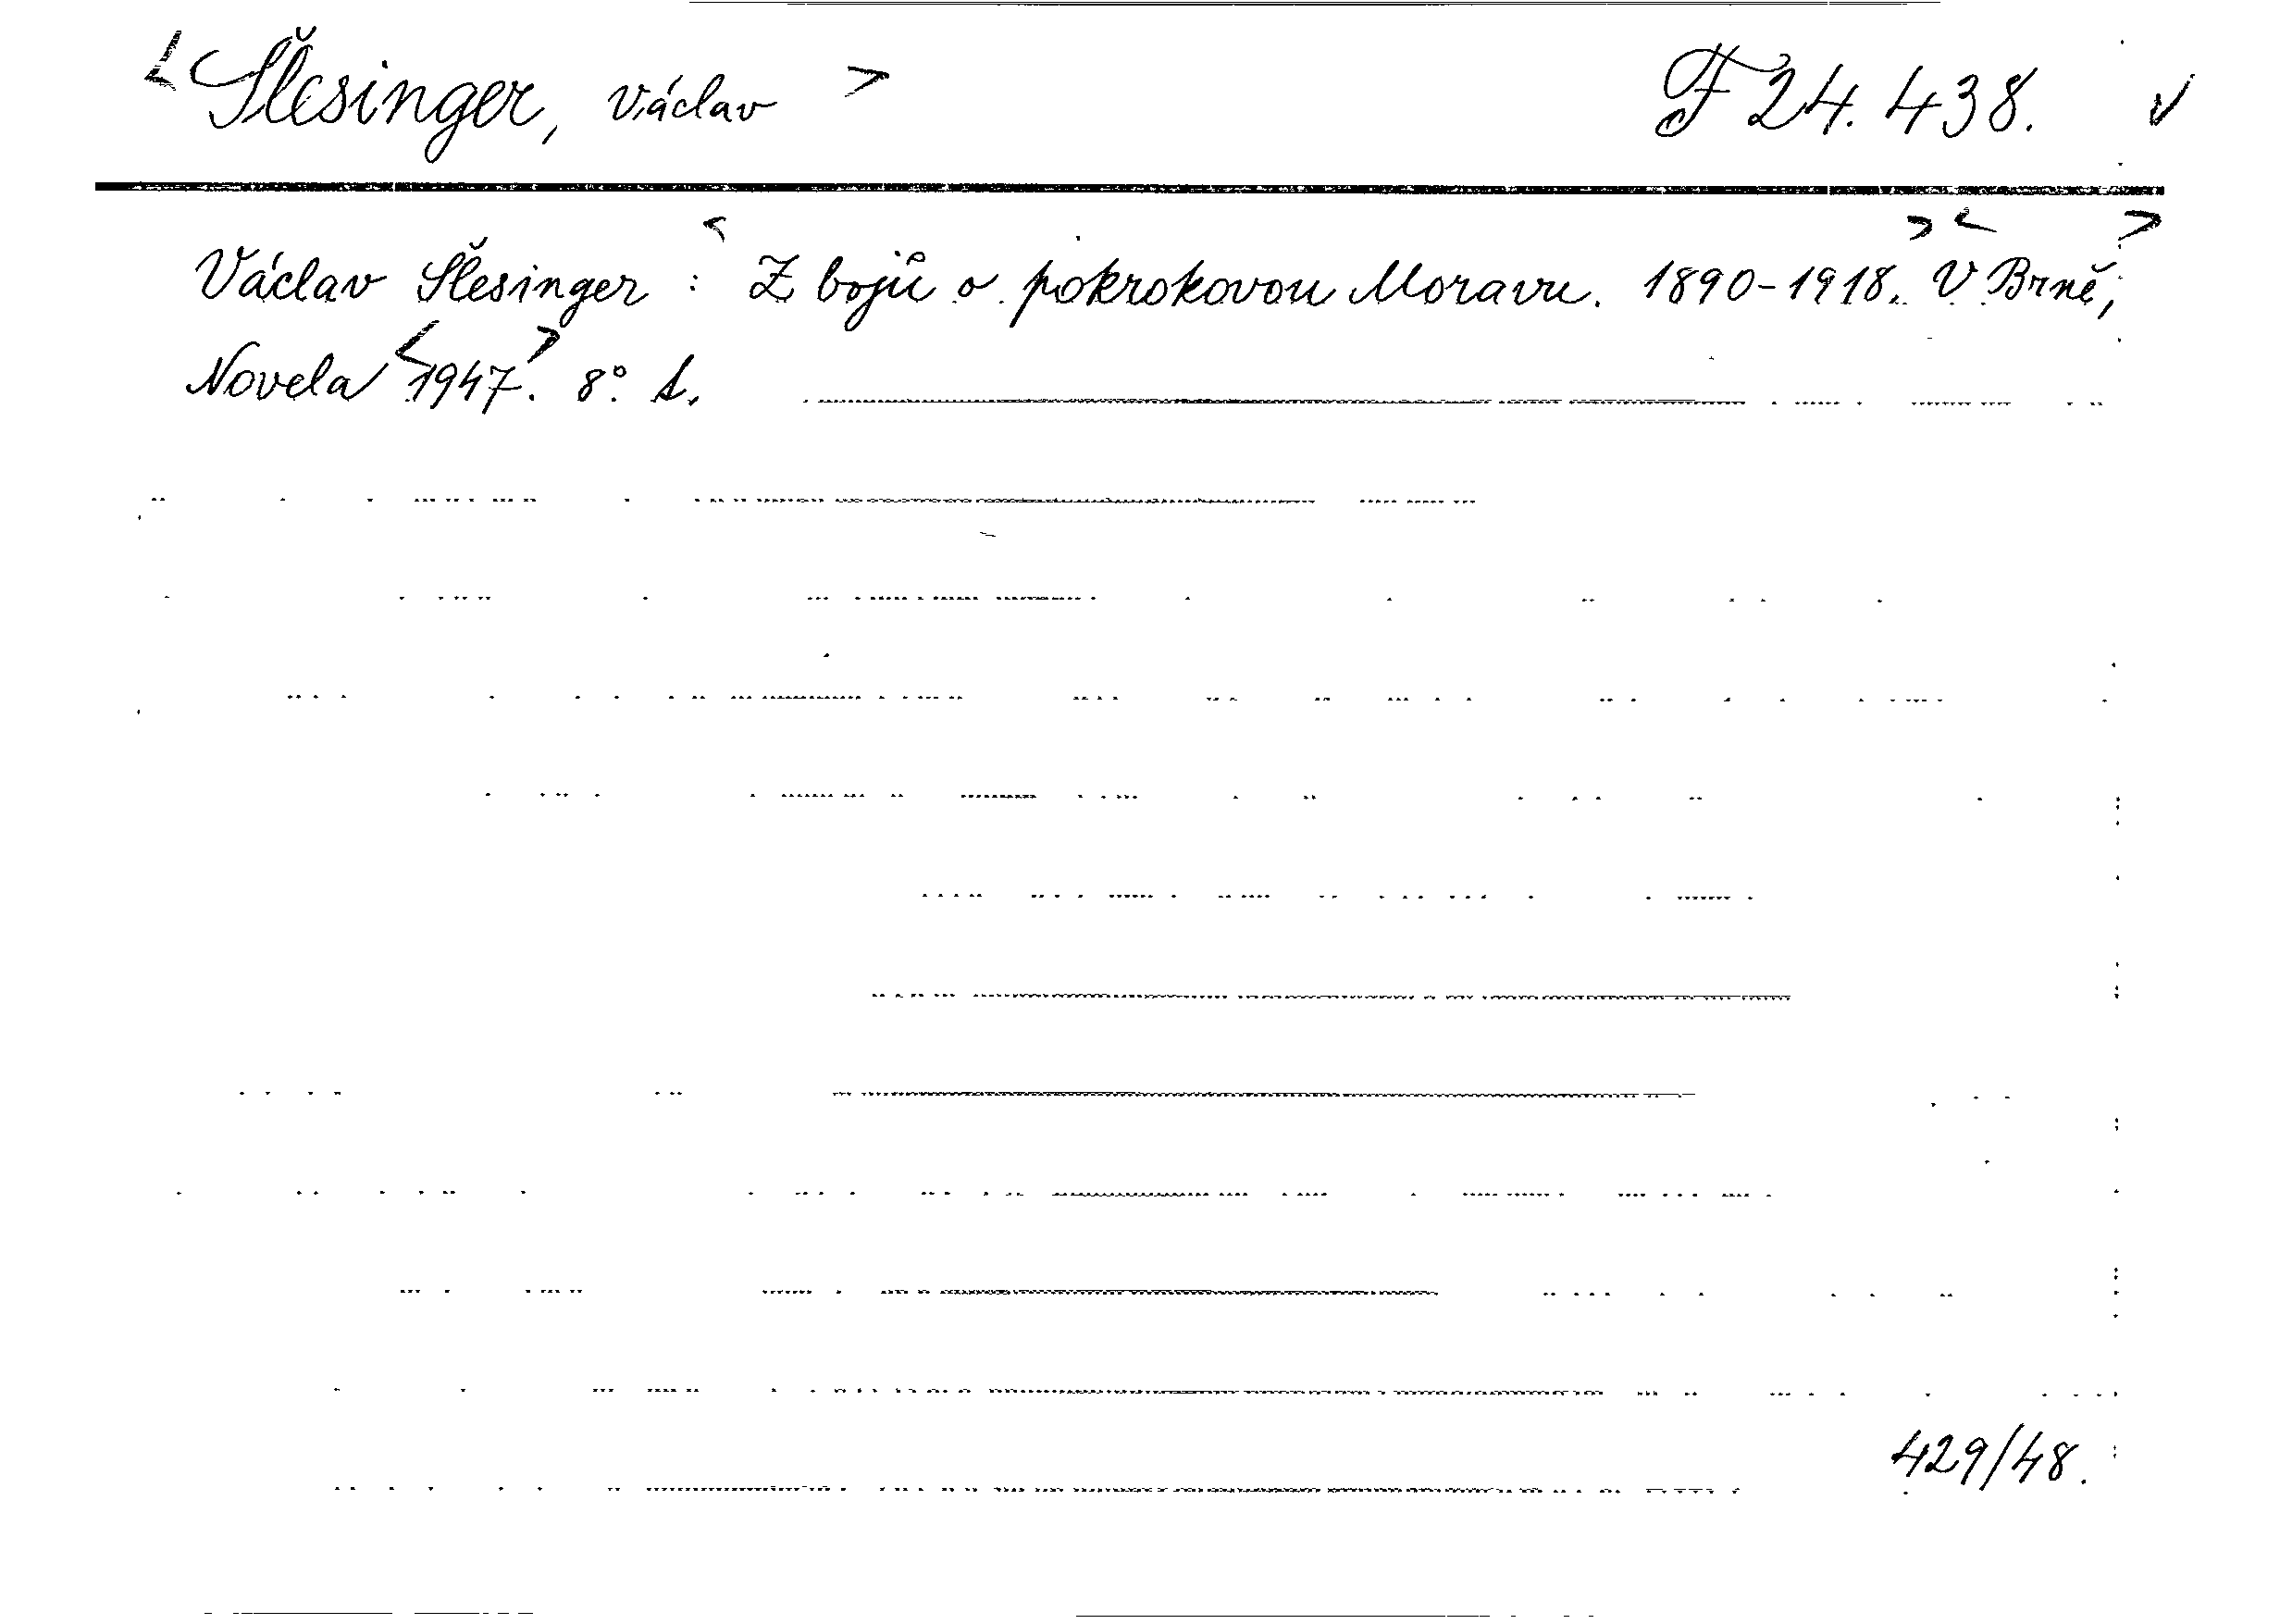 <Šlesinger, Václav> F 24.438. √
Václav Šlesinger: <Z bojů o pokrokovou Moravu. 1890-1918.> <V Brně,>
Novela <1947>. 8° s.
429/48.